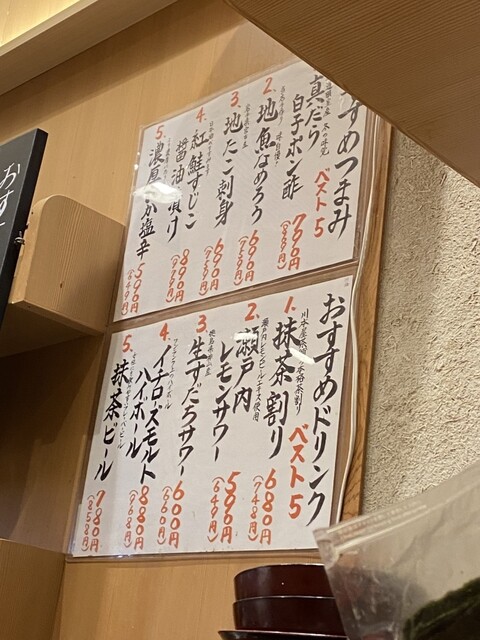 すすめつまみ
ベスト5
真だら
白子ポン酢
790円
2.
地魚なめろう
690円
3.
地たこ刺身
690円
4.
紅鮭すじこ
醤油漬け
890円
5.
塩辛
590円
(649円)
おすすめドリンク
ベスト5
1.
抹茶割り
680円
(748円)
2.
瀬戸内
レモンサワー
590円
(649円)
3.
生すだちサワー
600円
(660円)
4.
イチローズモルト
ハイボール
880円
(968円)
5.
抹茶ビール
780円
(858円)
おす